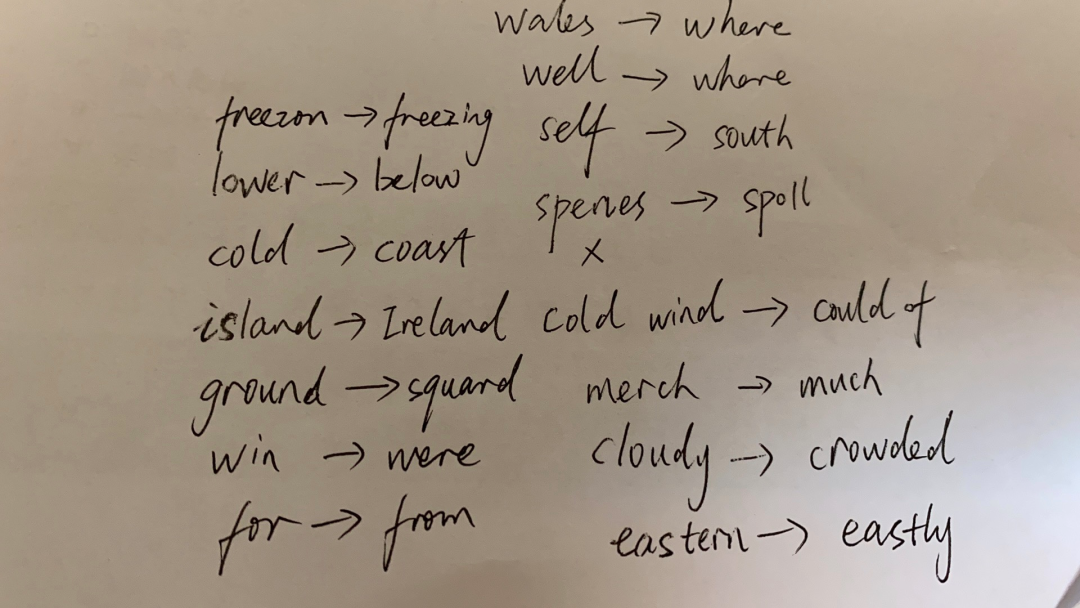 wales → where
well → where
freezon → freezing
self → south
lower → below
spenes → spoll
cold → coast
x
island → Ireland
cold wind → could of
ground → squard
merch → much
win → were
cloudy → crowded
for → from
eastern → eastly